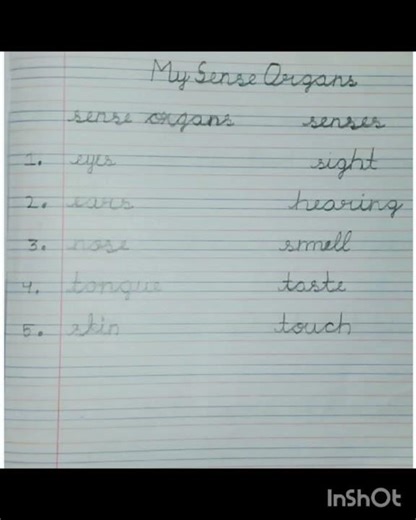 My Sense Organs
sense organs senses
1. eyes sight
2. ears hearing
3. nose smell
4. tongue taste
5. skin touch
InShOt